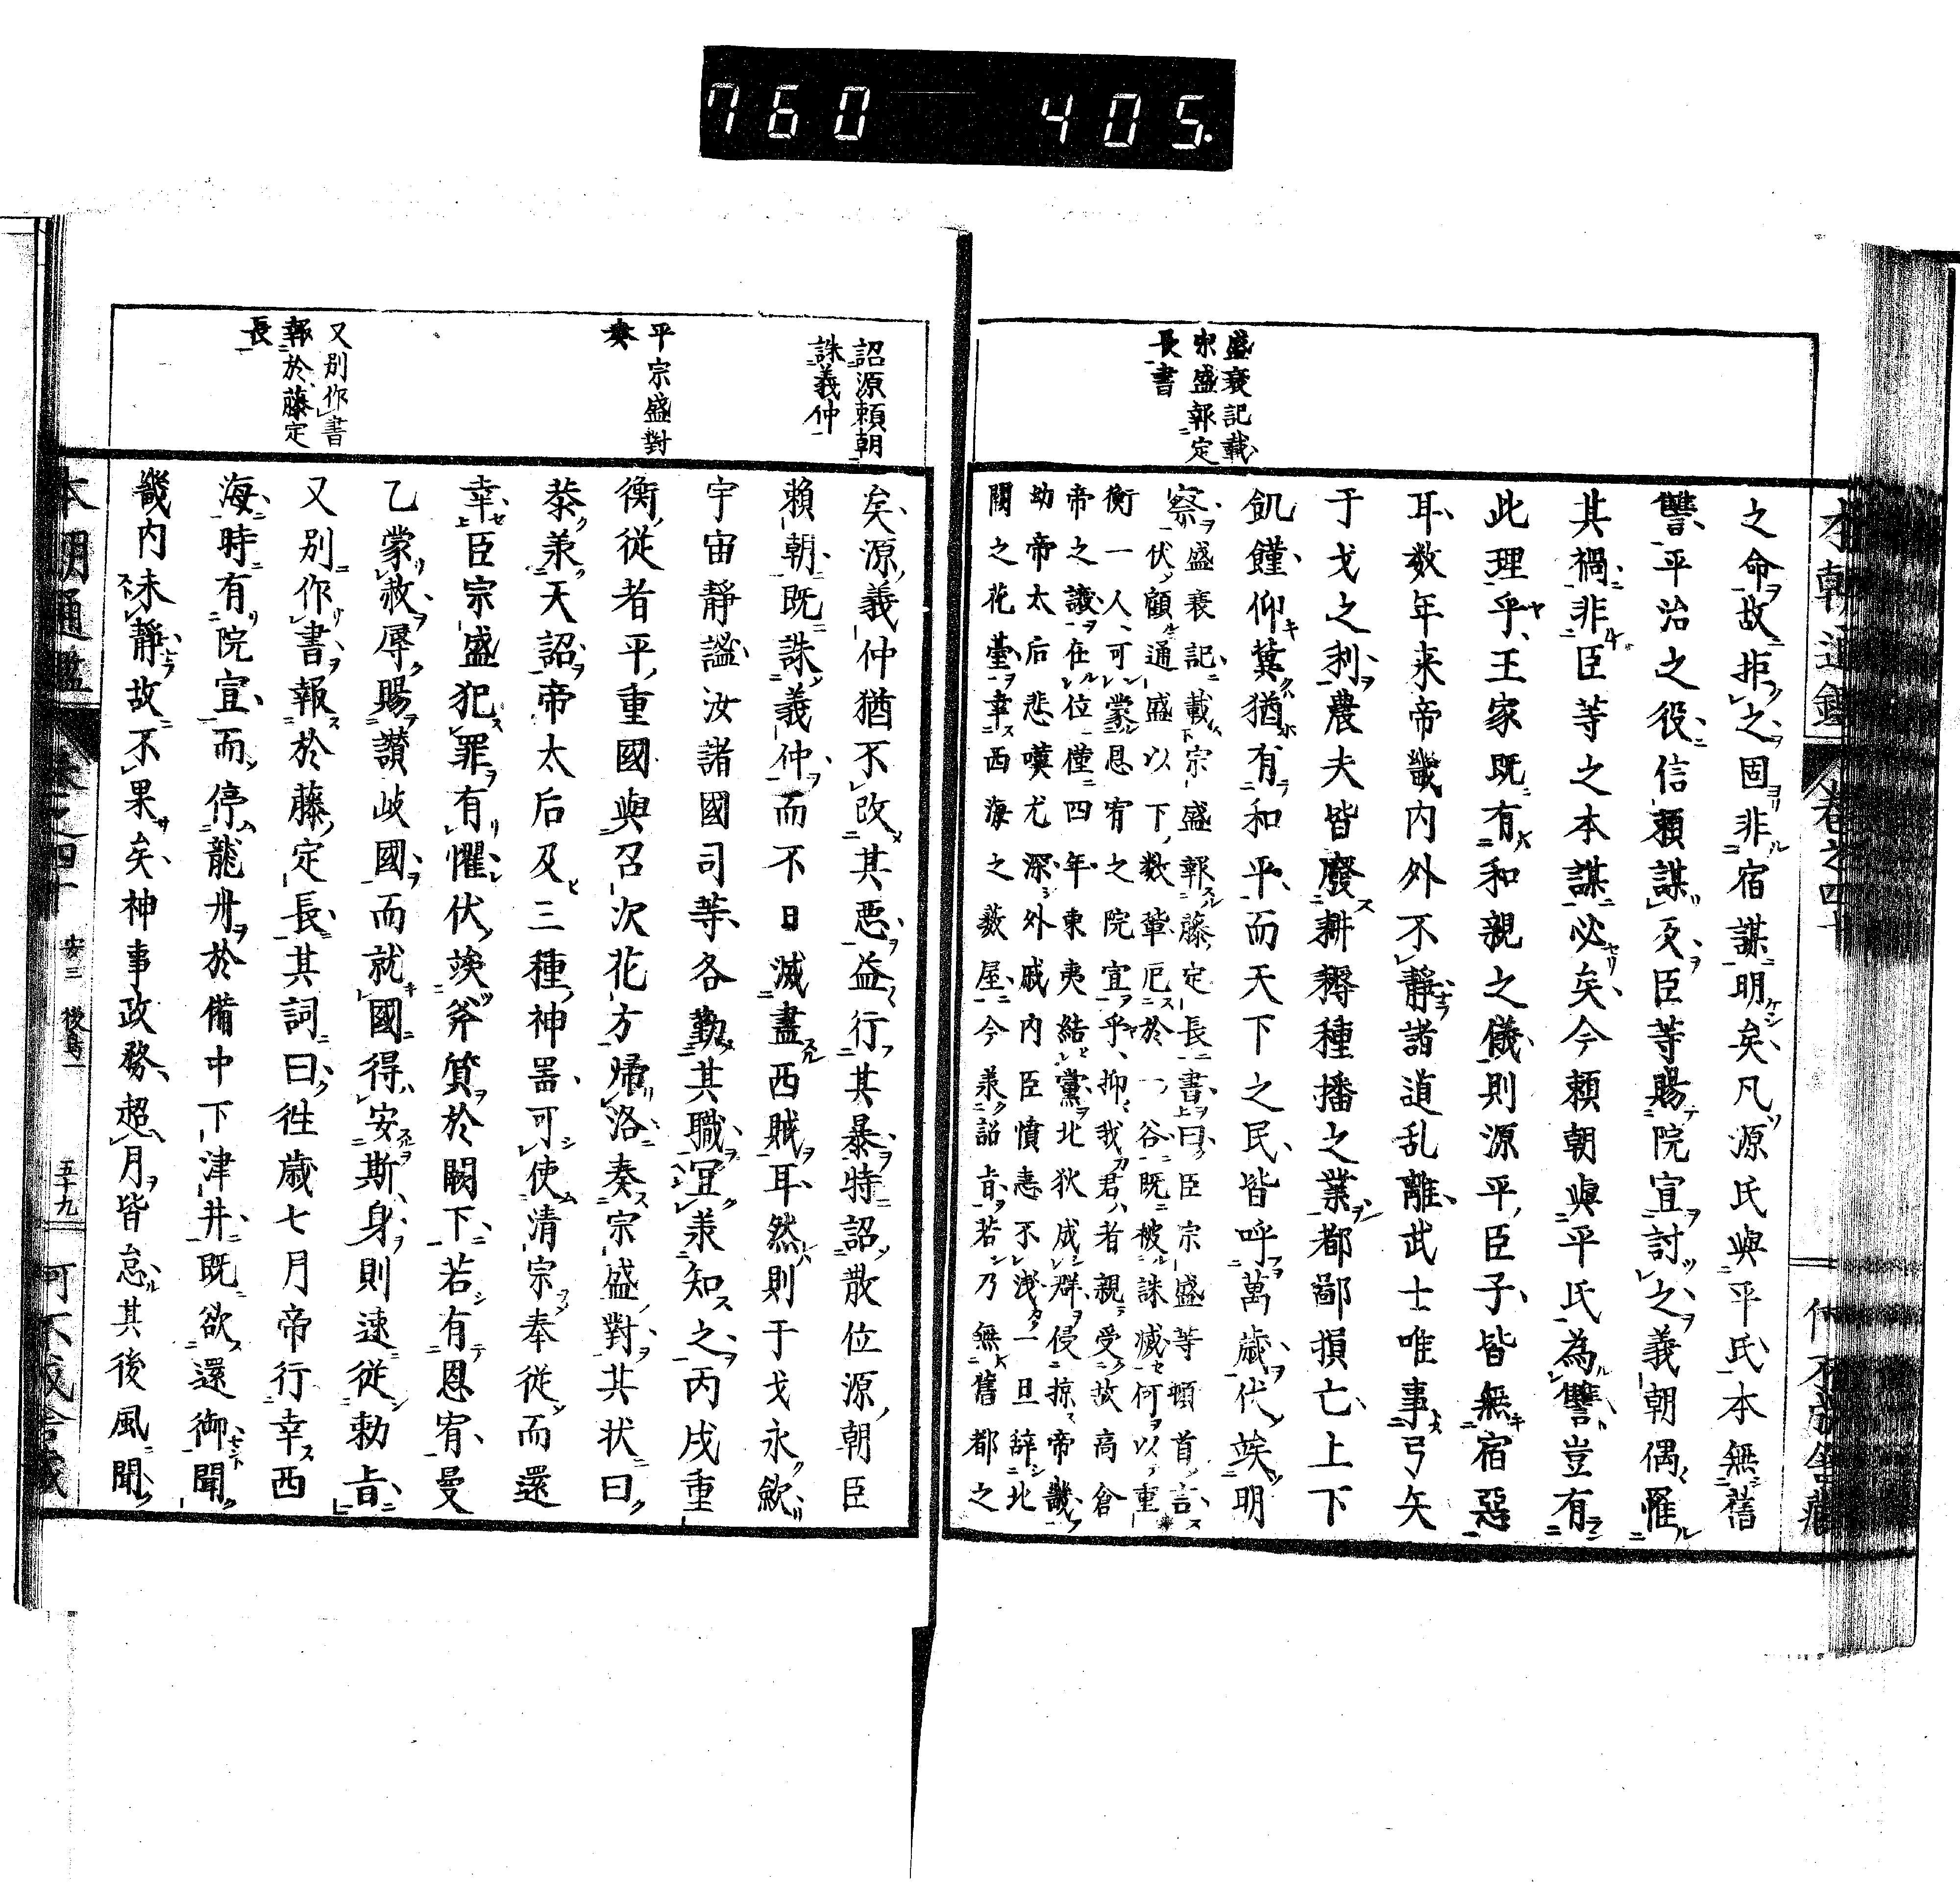 盛衰記載
宗盛報定
長書
本朝通鑑 卷之四十 何不成舎蔵
之命故拒之固非宿謀明矣凡源氏與平氏本無舊
讐平治之役信頼謀反臣等賜院宣討之義朝偶罹
其禍非臣等之本謀必矣今頼朝與平氏為讐豈有
此理乎王家既有和親之儀則源平臣子皆無宿惡
耳数年来帝畿内外不静諸道乱離武士唯事弓矢
于戈之利農夫皆廢耕耨種播之業都鄙損亡上下
飢饉仰冀猶有和平而天下之民皆呼萬歳伏竢明
察盛衰記載宗盛報藤定長書曰臣宗盛等頓首言
伏顧通盛以下数輩厄於一谷既被誅滅何以重
衡一人可蒙恩宥之院宣乎抑我君者親受故高倉
帝之譲在位僅四年東夷結黨北狄成群侵掠帝畿
幼帝太后悲嘆尤深外戚内臣憤恚不浅一旦辞北
闕之花臺幸西海之薮屋今承詔旨若乃無舊都之
詔源頼朝
誅義仲
平宗盛對
奏
又別作書
報於藤定
長
矣源義仲猶不改其悪益行其暴特詔散位源朝臣
頼朝既誅義仲而不日滅盡西賊耳然則于戈永歛
宇宙静謐汝諸國司等各勤其職冝承知之丙戌重
衡從者平重國與召次花方帰洛奏宗盛對其状曰
恭承天詔帝太后及三種神噐可使清宗奉從而還
幸臣宗盛犯罪有懼伏竢斧質於闕下若有恩宥曼
乙蒙赦辱賜讃岐國而就國得安斯身則速從勅旨
又別作書報於藤定長其詞曰徃歳七月帝行幸西
海時有院宣而停龍舟於備中下津井既欲還御聞
畿内未静故不果矣神事政務超月皆怠其後風聞
本朝通鑑 卷之四十 安三 後鳥一 五十九 何不成舎蔵
760 405.